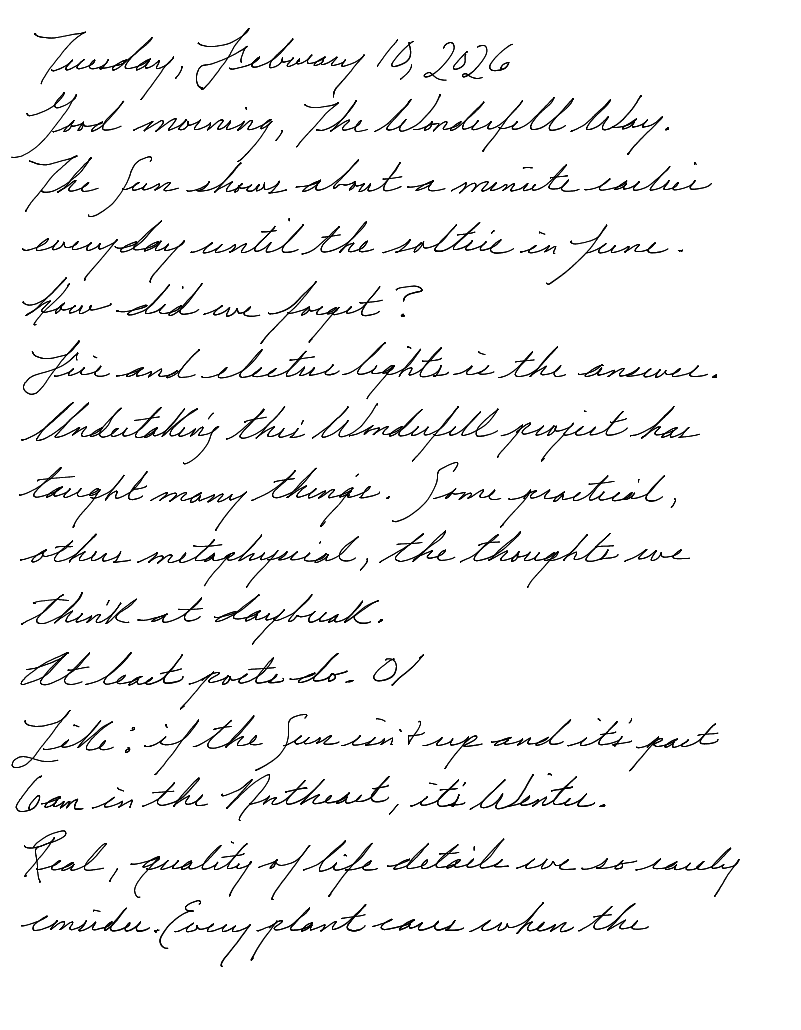 Tuesday, February 10, 2026
Good morning, The Wonderfull Way.
The Sun shows about a minute earlier
everyday until the soltice in June.
How did we forget?
Fire and electric lights is the answer.
Undertaking this Wonderfull project has
taught many things. Some practical,
others metaphysical, the thoughts we
think at daybreak.
At least poets do. 01
Like: if the Sun isn't up and it's past
6am in the Northeast, it's Winter.
Real, quality of life details we so rarely
consider. Every plant cares when the